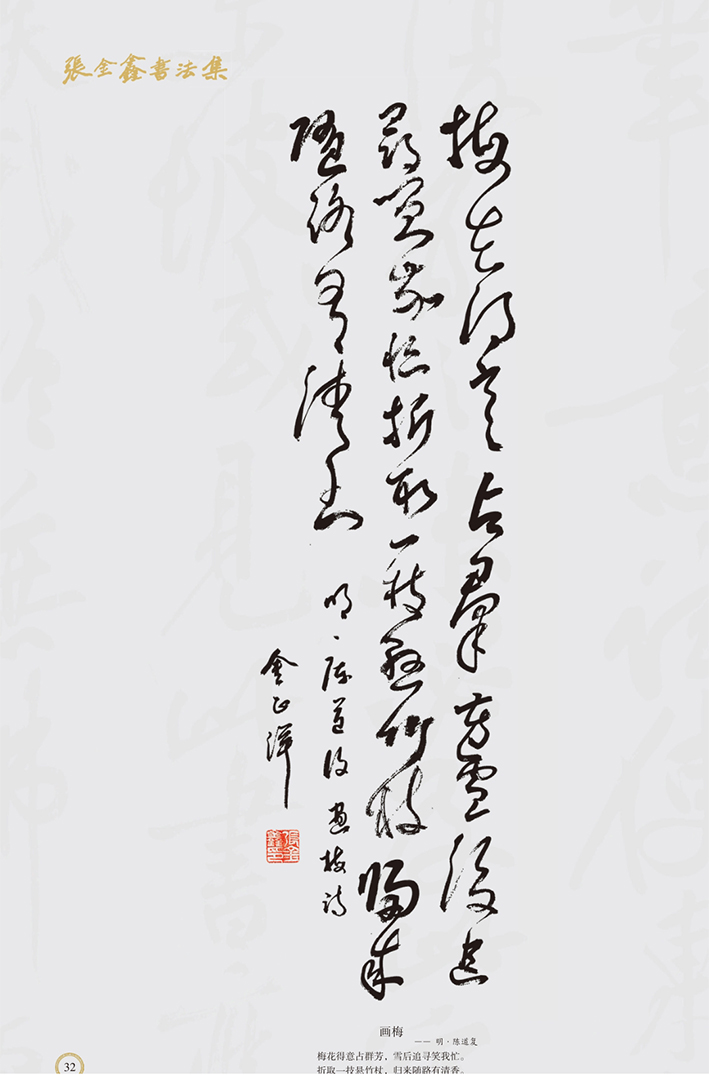 張金鑫書法集
梅花得意占群芳雪後追
尋笑我忙折取一枝懸竹杖歸來
隨路有清香
明、陳道復畫梅詩
金鑫
画梅
—— 明·陈道复
梅花得意占群芳，雪后追寻笑我忙。
折取一技悬竹杖，归来随路有清香。
32